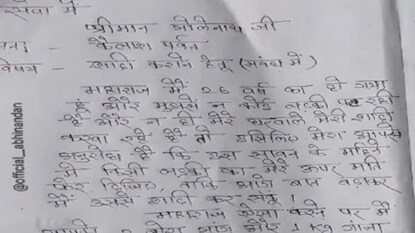 सेवा में
श्रीमान भोलेनाथ जी
पता:- कैलाश पर्वत
विषय - शादी करने हेतु (सबंध में)
महाराज मैं 26 वर्ष का हो गया
हूँ और मुझसे न कोई लड़की पट रही
है और न ही मेरे घरवाले मेरी शादी
करवा रहे हैं तो इसलिए मेरा आपसे
अनुरोध है कि इस सावन के महिने
में किसी लड़की का मेरे ऊपर मति
फेर दिजिए, ताकि आगे बात बढ़ाकर
मैं उससे शादी कर सकूं।
महाराज ऐसा करने पर मैं
और 1 kg गांजा
@official_abhinandan